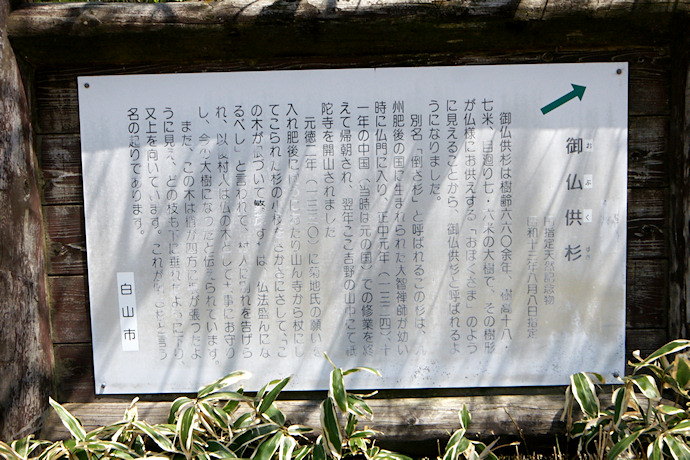 御仏供杉
おぶくすぎ
指定天然記念物
昭和十三年八月八日指定
御仏供杉は樹齢六八〇余年、樹高十八・
七米、目廻り七・六米の大樹で、その樹形
が仏様にお供えする「おぼくさま」のよう
に見えることから、御仏供杉と呼ばれるよ
うになりました。
別名「倒さ杉」と呼ばれるこの杉は、九
州肥後の国に生まれられた大智禅師が幼い
時に仏門に入り、正中元年（一三二四）、十
一年の中国（当時は元の国）での修業を終
えて帰朝され、翌年ここ吉野の山中にて
陀寺を開山されました
元徳二年（一三三〇）に菊地氏の願いを
入れ肥後に わたり山ん寺から杖にし
てこられた杉の小枝をさかさにさして、「こ
の木が根づいて繁 ば、仏法盛んにな
るべし」と言われて、村人に別れを告げら
れ、以後村人は仏の木として大事にお守り
し、今の大樹になったと伝えられています。
また、この木は枝が四方に張ったよ
うに見え、どの枝も下に垂れたように下り、
又上を向いています。これが倒さ杉と言う
名の起りであります。
白山市